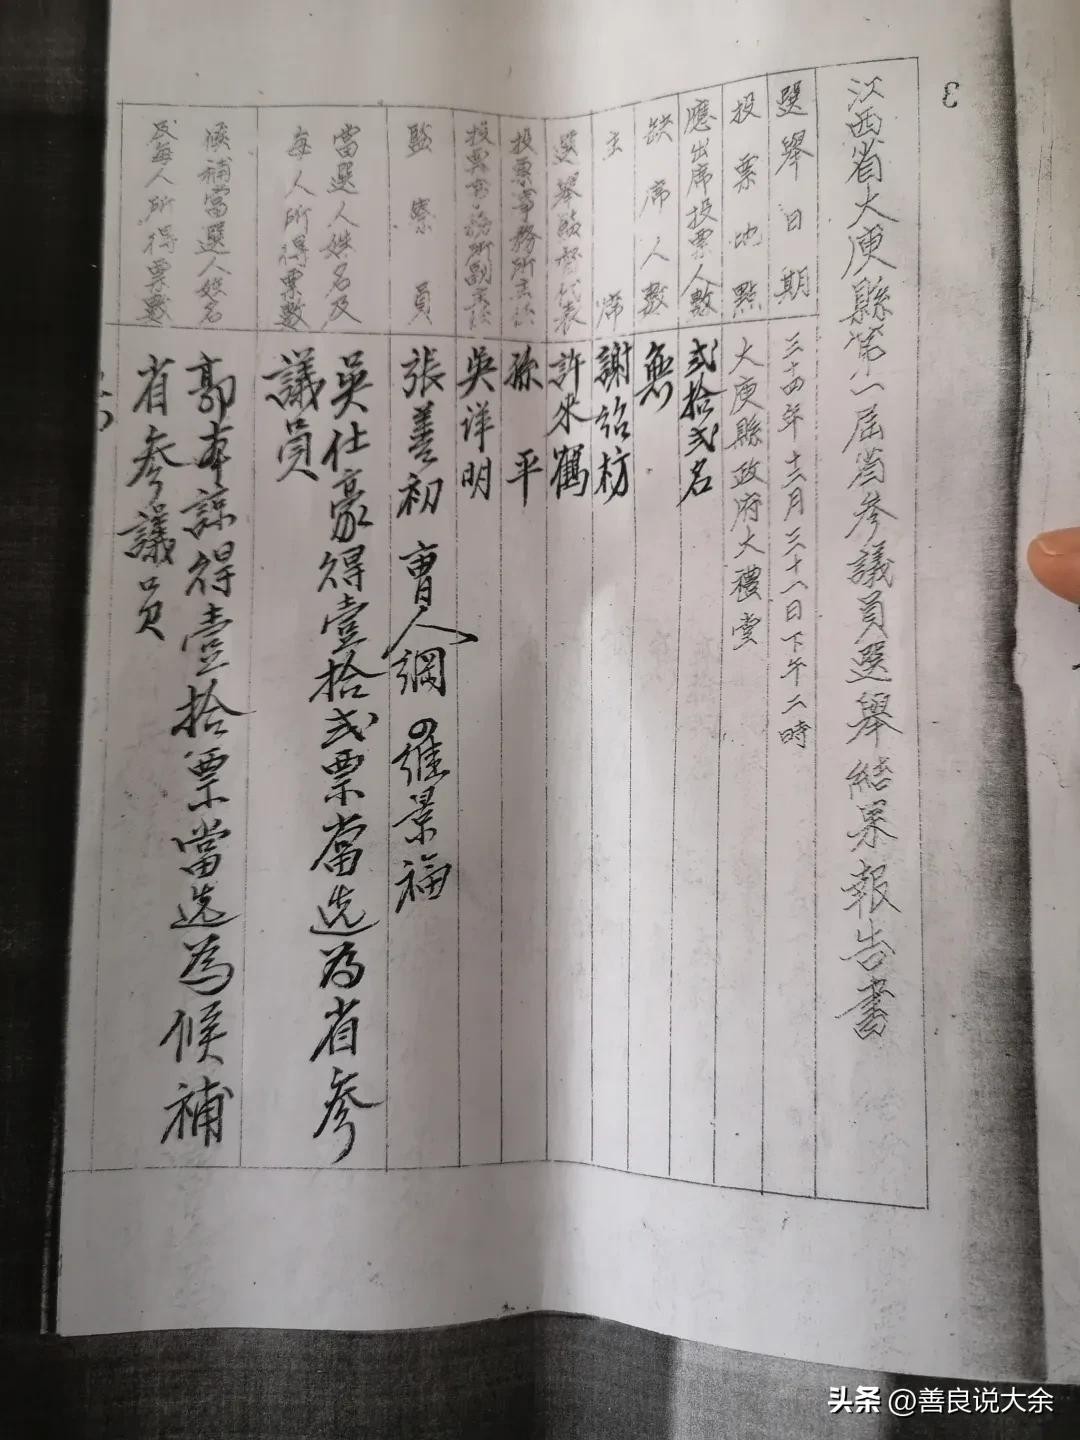 3
江西省大庾縣第一屆省參議員選舉結果報告書
選舉日期
三十四年十二月三十一日下午二時
投票地點
大庾縣政府大禮堂
應出席投票人數
弍拾弍名
缺席人數
無
主席
謝詒枋
選舉監督代表
許米鶴
投票事務所主任
孫平
投票事務所副主任
吳洋明
監察員
張善初 曹人綱 羅景福
當選人姓名及
每人所得票數
吳仕豪得壹拾弍票當选為省參
議員
候補當選人姓名
及每人所得票數
郭本諒得壹拾票當选為候補
省參議員
头条 @善良说大余